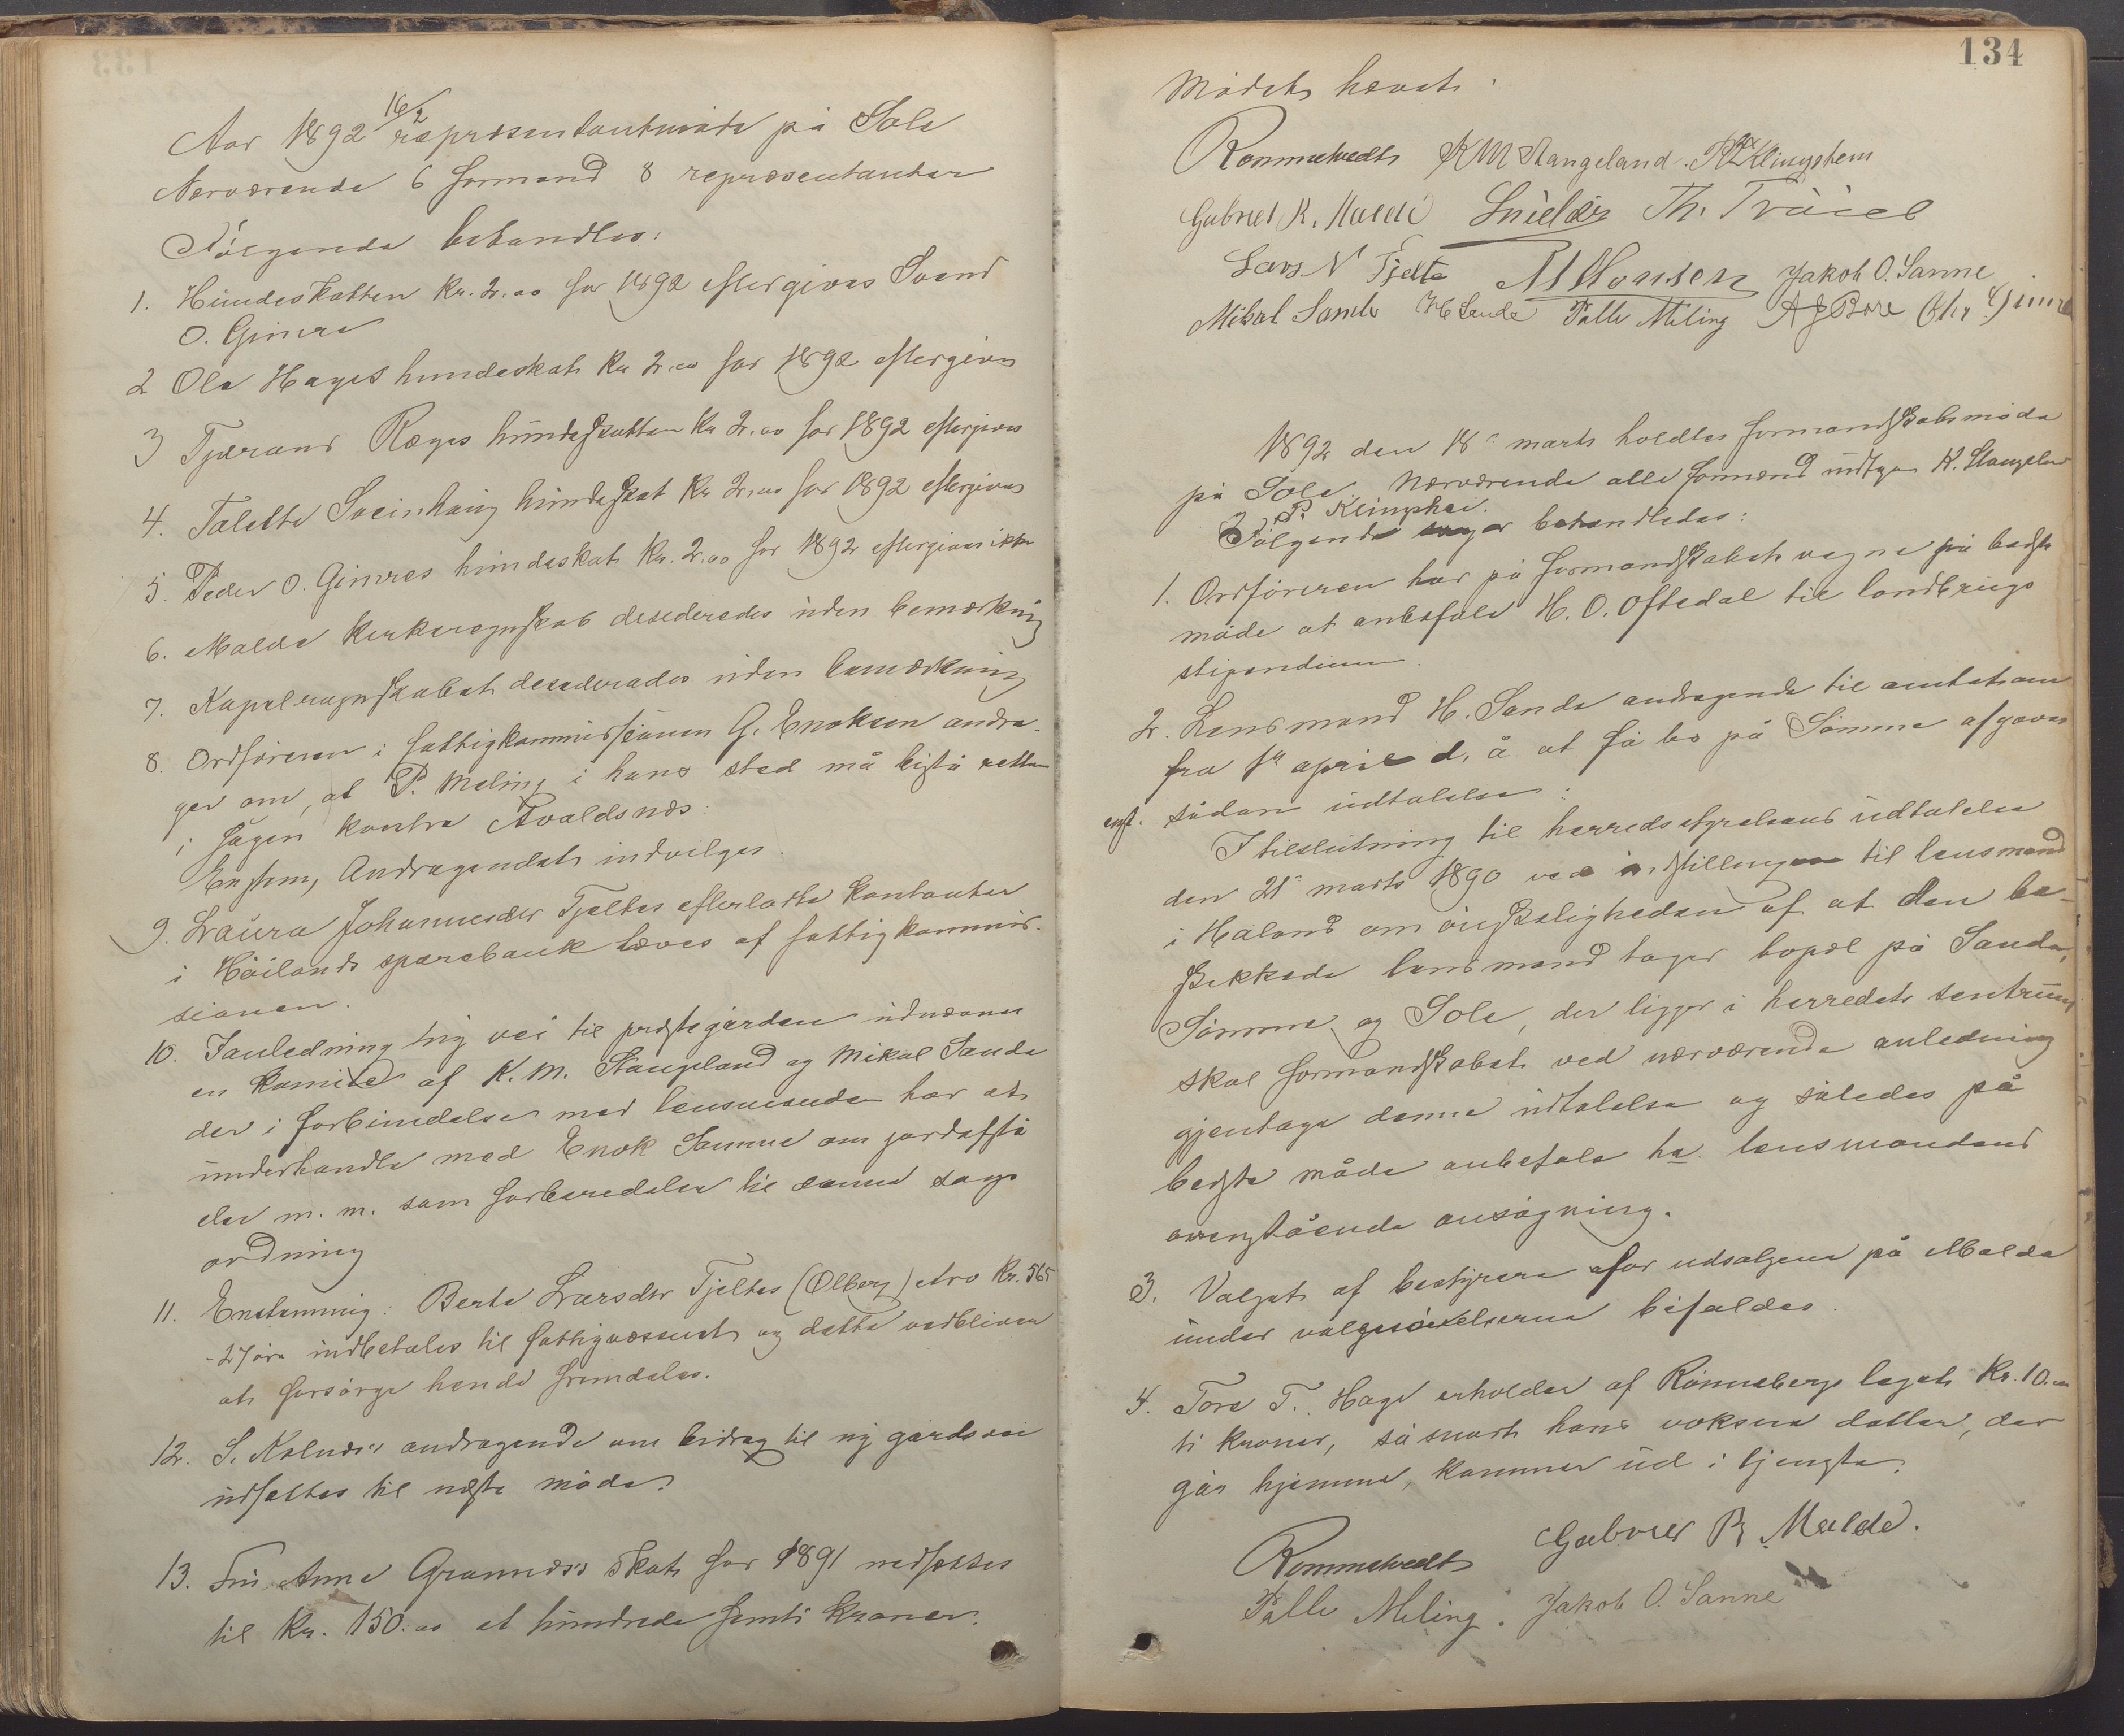 Aar 1892 16/2 repræsentantmøde på Sole
Nærværende 6 formænd 8 repræsentanter
Følgende behandles:
1. Hundeskatten Kr. 2.00 for 1892 eftergives Svend
O. Gimre
2 Ole Hages hundeskat Kr 2.00 for 1892 eftergives
3 Tjærand Ræges hundeskatten Kr 2.00 for 1892 eftergives
4. Talette Sveinhaug hundeskat Kr 2.00 for 1892 eftergives
5. Peder O. Gimres hundeskat Kr. 2.00 for 1892 eftergives ikke
6. Malde Kirkeregnskab desiderades uden bemærkning
7. Kapelregnskabet desiderades uden bemærkning
8. Ordføreren i fattigkommissionen G. Enoksen andra-
ger om, at P. Meling i hans sted må bistå retten
i sagen kontra Avaldsnæs.
Enstem, Andragendet indvilges.
9. Laura Johannesdtr Tjeltes efterladte kontanter
i Håilands sparebank hæves af fattigkommis-
sionen.
10. I anledning ny vei til prestegården udnævnes
en komite af K. M. Stangeland og Mikal Sande
der i forbindelse med lensmanden har at
underhandle med Enok Sømme om jordafstå
else m. m. som forberedelse til denne sags
ordning
11. Enstemmig: Berte Larsdtr Tjeltes (Ølberg) Arv Kr. 565
- 27 øre indbetales til fattigvæsenet og dette vedbliver
at forsørge hende fremdeles.
12. S. Kolnæs's andragende om bidrag til ny gårdsvei
udsættes til næste møde.
13. Fru Anne Grannæs's skat for 1891 nedsættes
til Kr. 150.00 et hundrede femti kroner.
134
Mødet hævet.
Rommetvedt K M Stangeland. R Klingsheim
Gabriel R. Malde Th.
Lars N Tjelta M Monsen Jakob O. Sanne
Mikal Sande H Sande Palle Meling A J Bore Chr Gimre
1892 den 18de marts holdtes formandskabsmøde
på Sole. Nærværende alle formænd undtagen K. Stangeland
P. Klingshei.
Følgende sager behandledes:
1. Ordføreren har på formandskabets vegne på bedste
måde at anbefale H. O. Oftedal til landbrugs
stipendium.
2. Lensmand H. Sande andragende til amtet om
fra 1ste april d. å at få bo på Sømme afgaves
enst. sådan udtalelse:
I tilslutning til herredsstyrelsens udtalelse
den 21de marts 1890 ved indstillingen til lensmand
i Håland om ønskeligheden af at den be-
skikkede lensmand tager bopæl på Sande,
Sømme og Sole, der ligger i herredets sentrum,
skal formandskabet ved nærværende anledning
gjentage denne udtalelse og således på
bedste måde anbefale hr. lensmandens
ovenstående ansøgning.
3. Valget af bestyrere for udsalgene på Malde
under bifaldes.
4. Tore T. Hage erholder af Rønneberg legat Kr. 10.00
ti kroner, så snart hans voksne datter, der
går hjemme, kommer ud i tjeneste.
Rommetvedt Gabriel R. Malde.
Palle Meling. Jakob O. Sanne